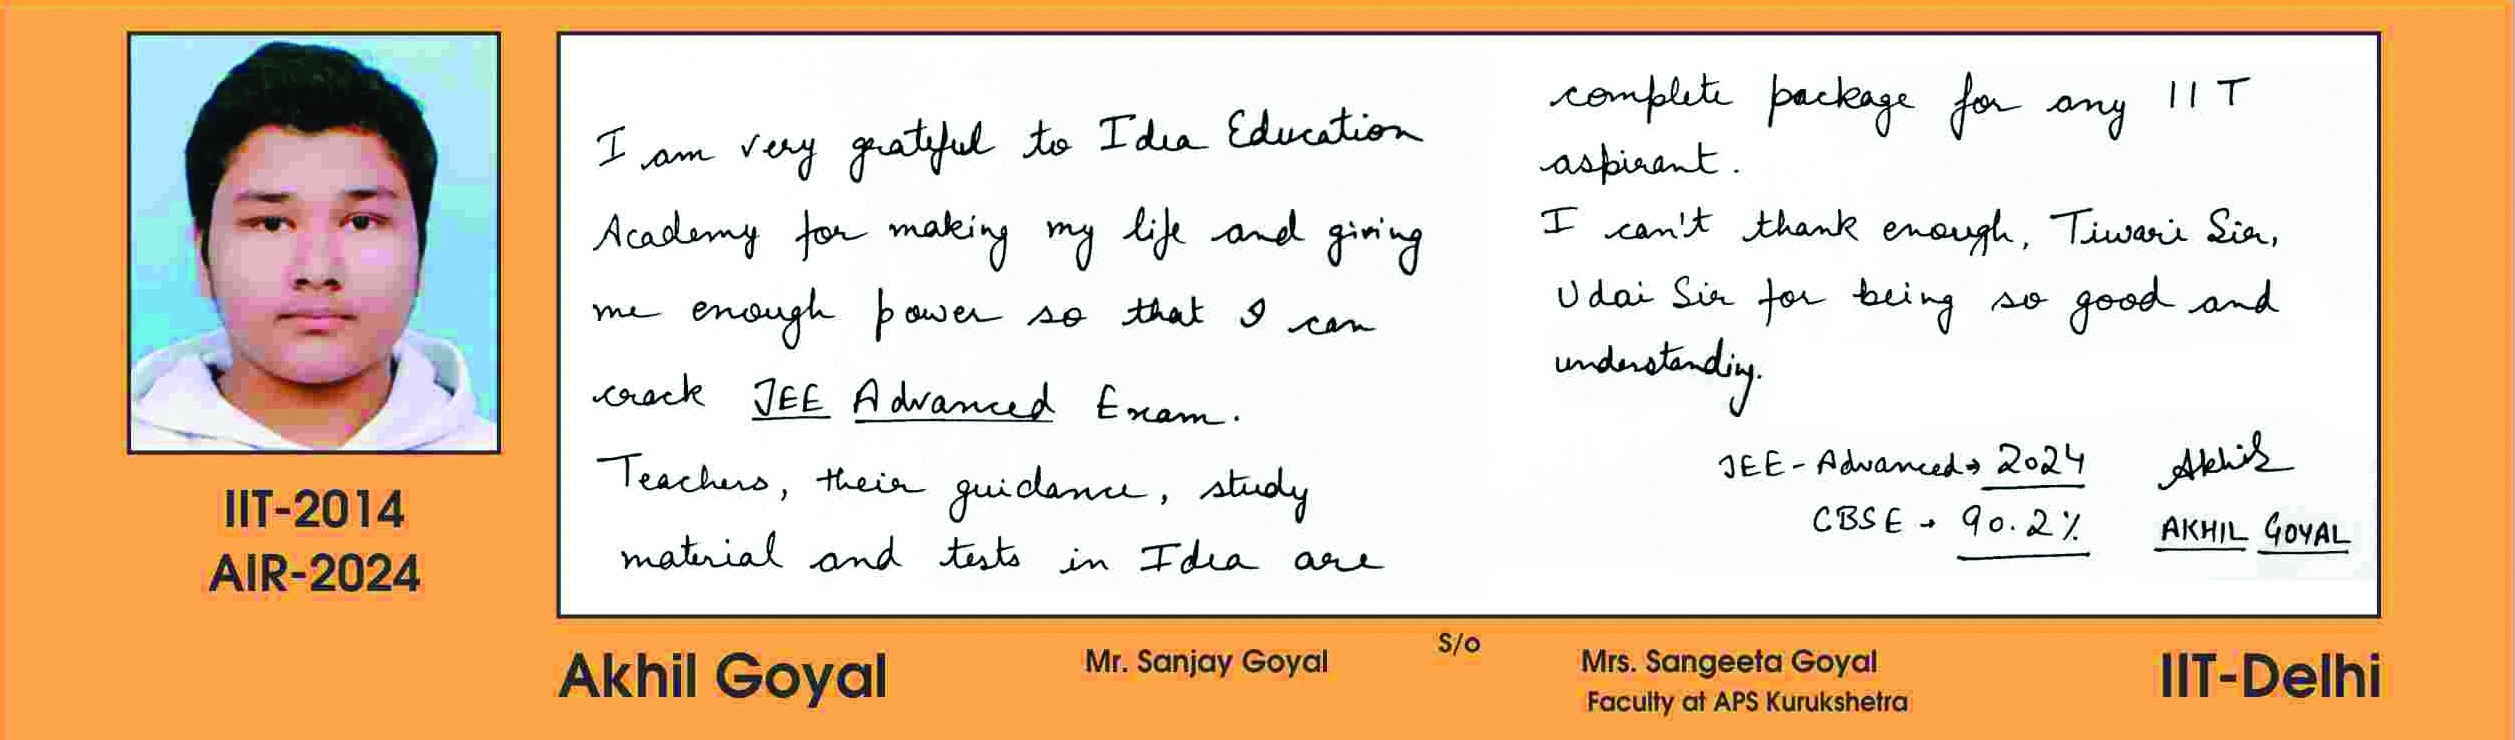 IIT-2014
AIR-2024
I am very grateful to Idea Education
Academy for making my life and giving
me enough power so that I can
crack JEE Advanced Exam.
Teachers, their guidance, study
material and tests in Idea are
complete package for any IIT
aspirant.
I can't thank enough, Tiwari Sir,
Udai Sir for being so good and
understanding.
JEE-Advanced→ 2024 Akhil
CBSE → 90.2% AKHIL GOYAL
Akhil Goyal
Mr. Sanjay Goyal
S/o
Mrs. Sangeeta Goyal
Faculty at APS Kurukshetra
IIT-Delhi